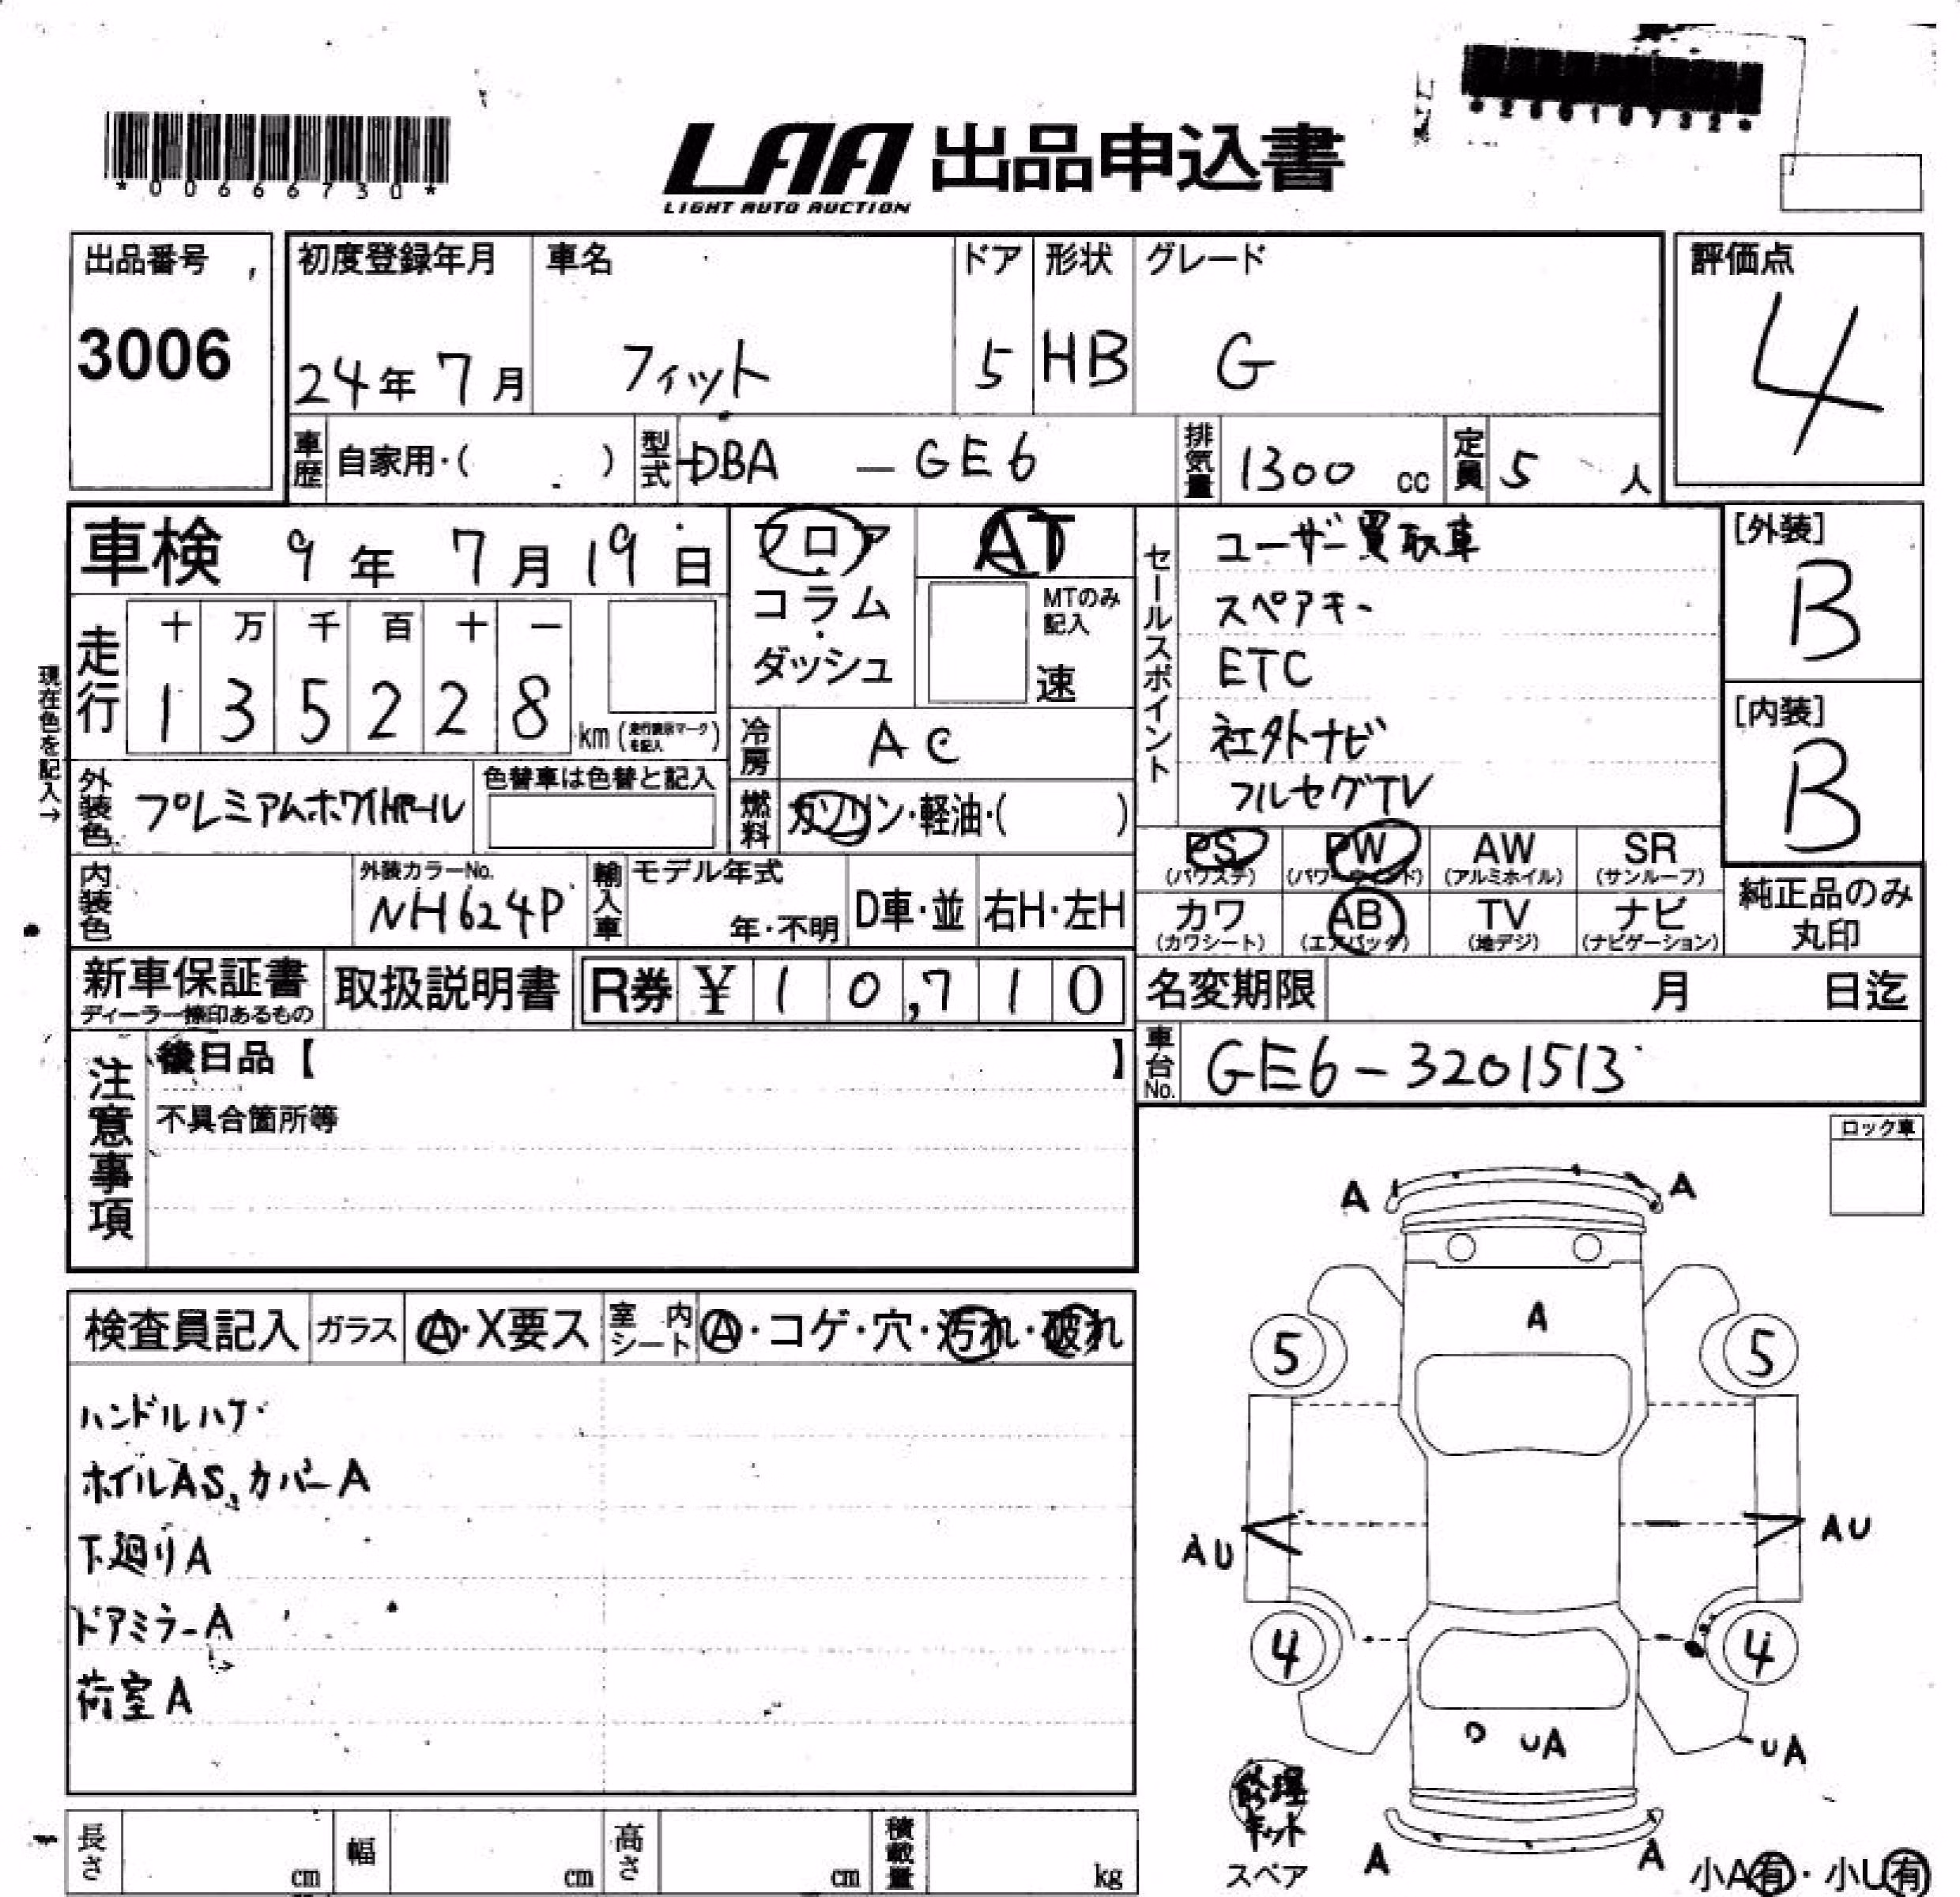 *00666730*
LAA 出品申込書
LIGHT AUTO AUCTION
出品番号
3006
初度登録年月
24年 7月
車名
フィット
ドア
5
形状
HB
グレード
G
評価点
4
車歴 自家用・( )
型式 DBA - GE6
排気量 1300 cc
定員 5 人
車検 9年 7月 19日
フロア
コラム
・
ダッシュ
AT
MTのみ
記入
速
セールスポイント
ユーザー買取車
スペアキー
ETC
社外ナビ
フルセグTV
[外装]
B
[内装]
B
走行
十 万 千 百 十 一
1 3 5 2 2 8
km
現在色を記入→
冷房 AC
燃料 ガソリン・軽油・( )
外装色 プレミアムホワイトパール
色替車は色替と記入
内装色
外装カラーNo.
NH624P
輸入車
モデル年式
年・不明
D車・並
右H・左H
PS
(パワステ)
PW
(パワーウインド)
AW
(アルミホイル)
SR
(サンルーフ)
カワ
(カワシート)
AB
(エアバッグ)
TV
(地デジ)
ナビ
(ナビゲーション)
純正品のみ
丸印
新車保証書
ディーラー捺印あるもの
取扱説明書
R券 ¥ 10,710
名変期限 月 日迄
車台No. GE6-3201513
注意事項
後日品【 】
不具合箇所等
ロック車
検査員記入
ガラス A・X要ス
室内シート A・コゲ・穴・汚れ・破れ
ハンドルハゲ
ホイルAS、カバーA
下廻りA
ドアミラーA
荷室A
A A
A
5 5
AU AU
4 4
UA
UA
修理
キット
スペア
A A
小A有・小U有
長さ cm
幅 cm
高さ cm
積載量 kg